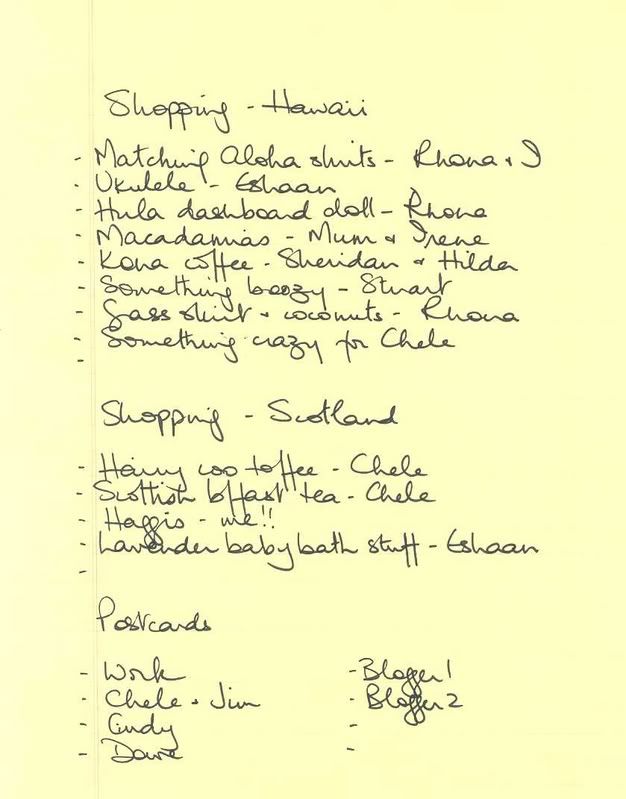 Shopping - Hawaii
- Matching Aloha shirts - Rhona + I
- Ukulele - Eshaan
- Hula dashboard doll - Rhona
- Macadamias - Mum + Irene
- Kona coffee - Sheridan + Hilda
- Something boozy - Stuart
- Gass skirt + coconuts - Rhona
- Something crazy for Chele
-
Shopping - Scotland
- Hairy coo toffee - Chele
- Scottish b'fast tea - Chele
- Haggis - me!!
- Lavender baby bath stuff - Eshaan
-
Postcards
- Work
- Chele + Jim
- Cindy
- Dave
- Blogger 1
- Blogger 2
-
-